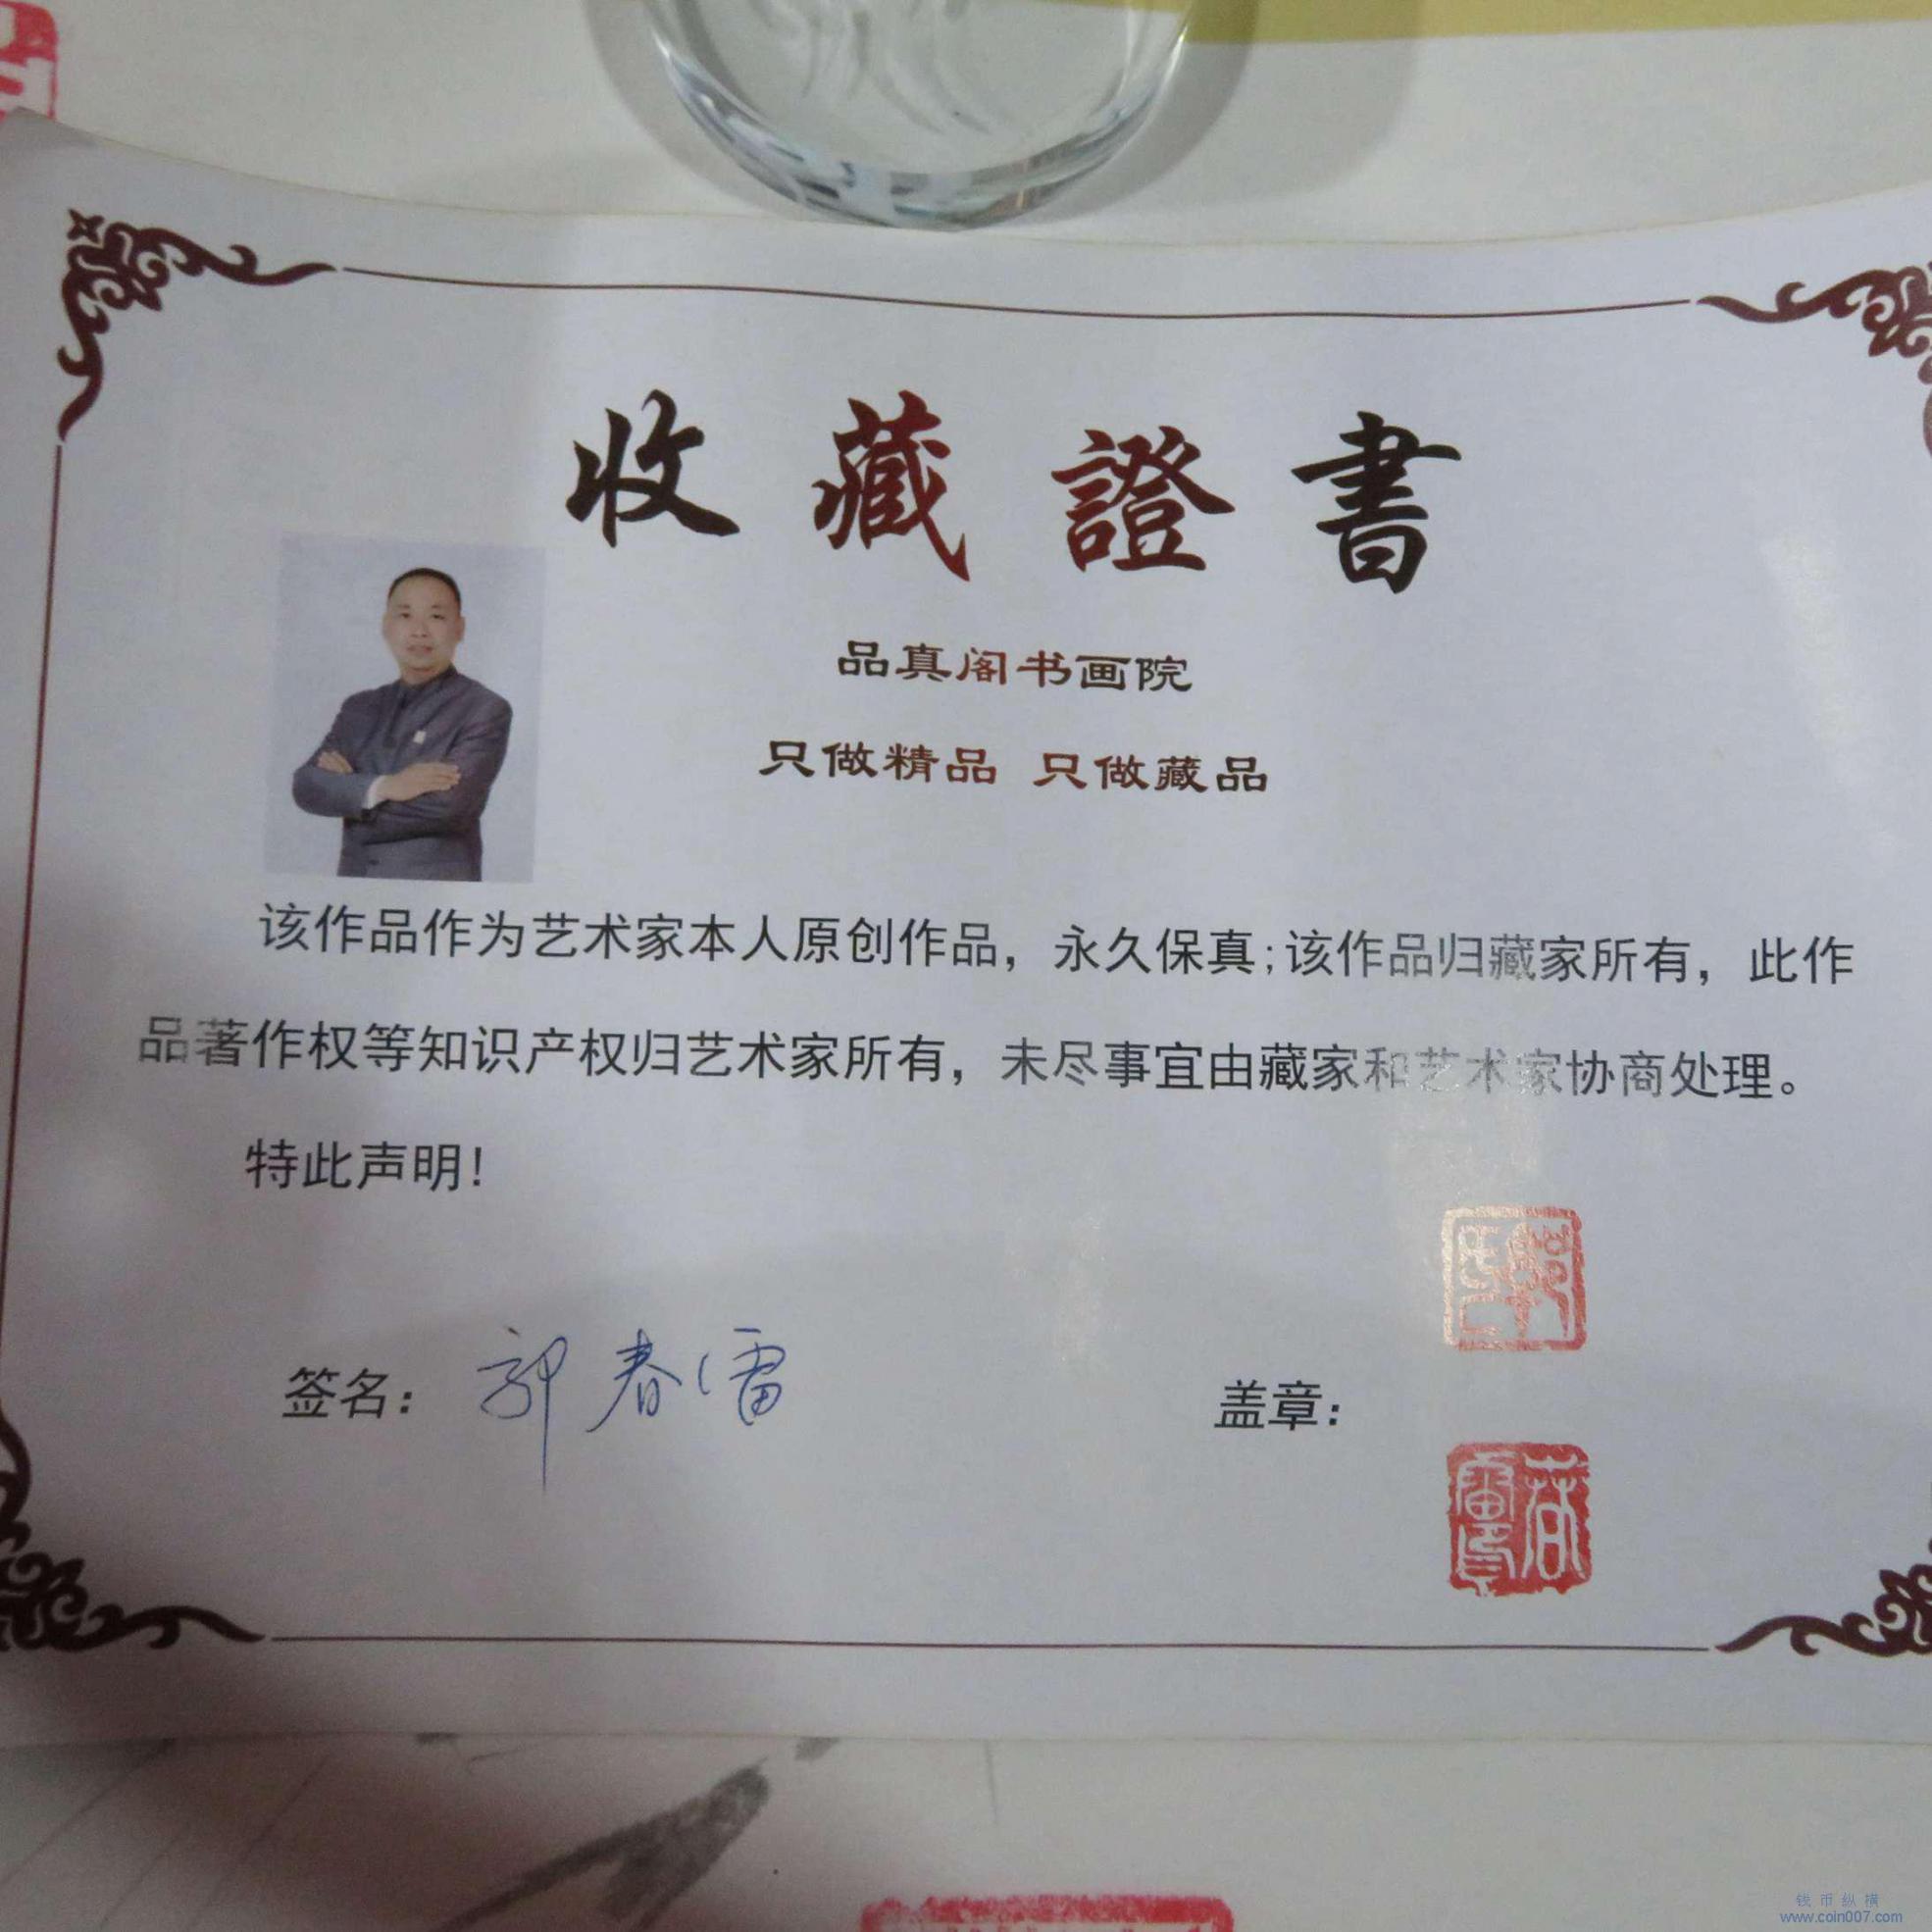 收藏證書
品真阁书画院
只做精品 只做藏品
该作品作为艺术家本人原创作品，永久保真;该作品归藏家所有，此作
品著作权等知识产权归艺术家所有，未尽事宜由藏家和艺术家协商处理。
特此声明!
签名： 郭春雷
盖章：
钱币纵横
www.coin007.com